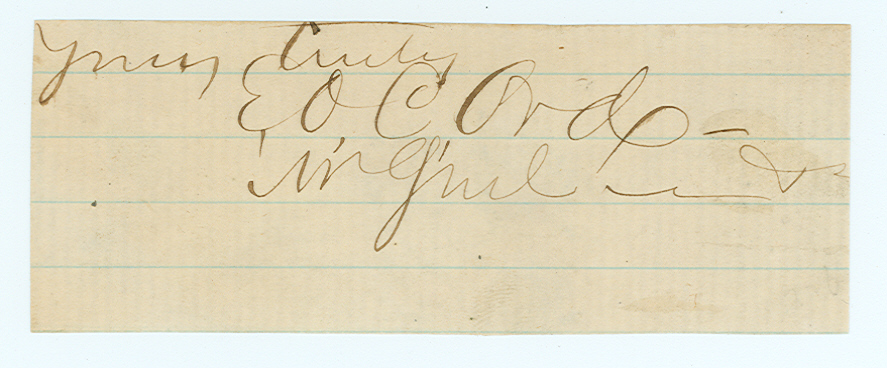 Yours truly
E O C Ord –
M Genl